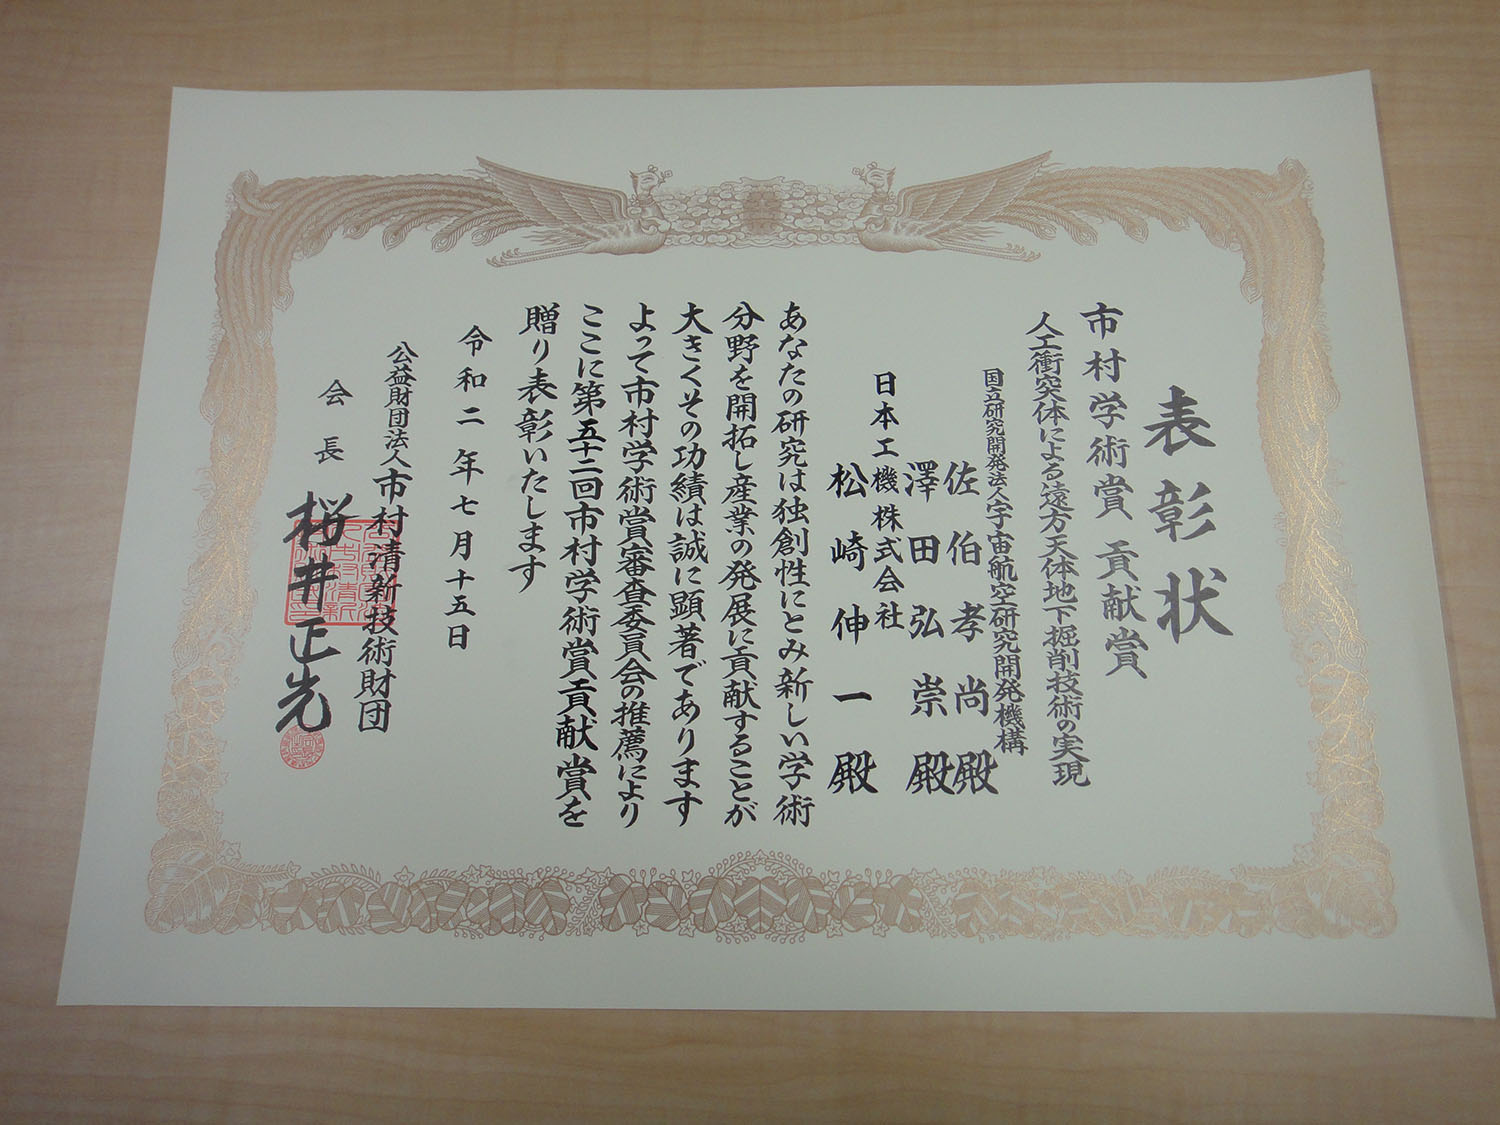 表彰状
市村学術賞 貢献賞
人工衝突体による遠方天体地下掘削技術の実現
国立研究開発法人宇宙航空研究開発機構
佐伯孝尚殿
澤田弘崇殿
日本工機株式会社
松崎伸一殿
あなたの研究は独創性にとみ新しい学術
分野を開拓し産業の発展に貢献することが
大きくその功績は誠に顕著であります
よって市村学術賞審査委員会の推薦により
ここに第五十二回市村学術賞貢献賞を
贈り表彰いたします
令和二年七月十五日
公益財団法人市村清新技術財団
会長 桜井正光